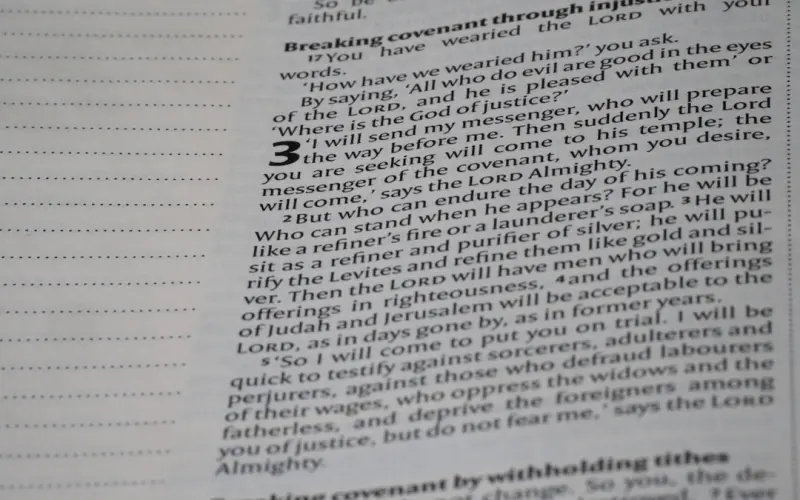 So be
faithful.
Breaking covenant through injus
17 You have wearied the LORD with your
words.
'How have we wearied him?' you ask.
By saying, 'All who do evil are good in the eyes
of the LORD, and he is pleased with them' or
'Where is the God of justice?'
3 'I will send my messenger, who will prepare
the way before me. Then suddenly the Lord
you are seeking will come to his temple; the
messenger of the covenant, whom you desire,
will come,' says the LORD Almighty.
2 But who can endure the day of his coming?
Who can stand when he appears? For he will be
like a refiner's fire or a launderer's soap. 3 He will
sit as a refiner and purifier of silver; he will pu-
rify the Levites and refine them like gold and sil-
ver. Then the LORD will have men who will bring
offerings in righteousness, 4 and the offerings
of Judah and Jerusalem will be acceptable to the
LORD, as in days gone by, as in former years.
5 'So I will come to put you on trial. I will be
quick to testify against sorcerers, adulterers and
perjurers, against those who defraud labourers
of their wages, who oppress the widows and the
fatherless, and deprive the foreigners among
you of justice, but do not fear me,' says the LORD
Almighty.
covenant by withholding tithes
change. So you, the de-